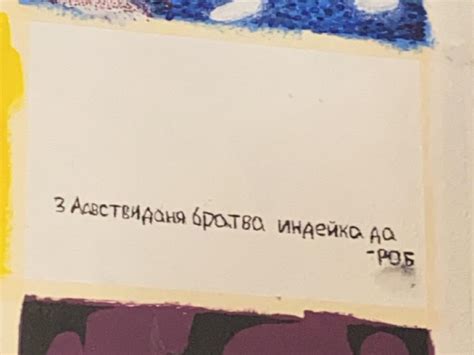 З Давствиданя братва индейка да
-РОБ